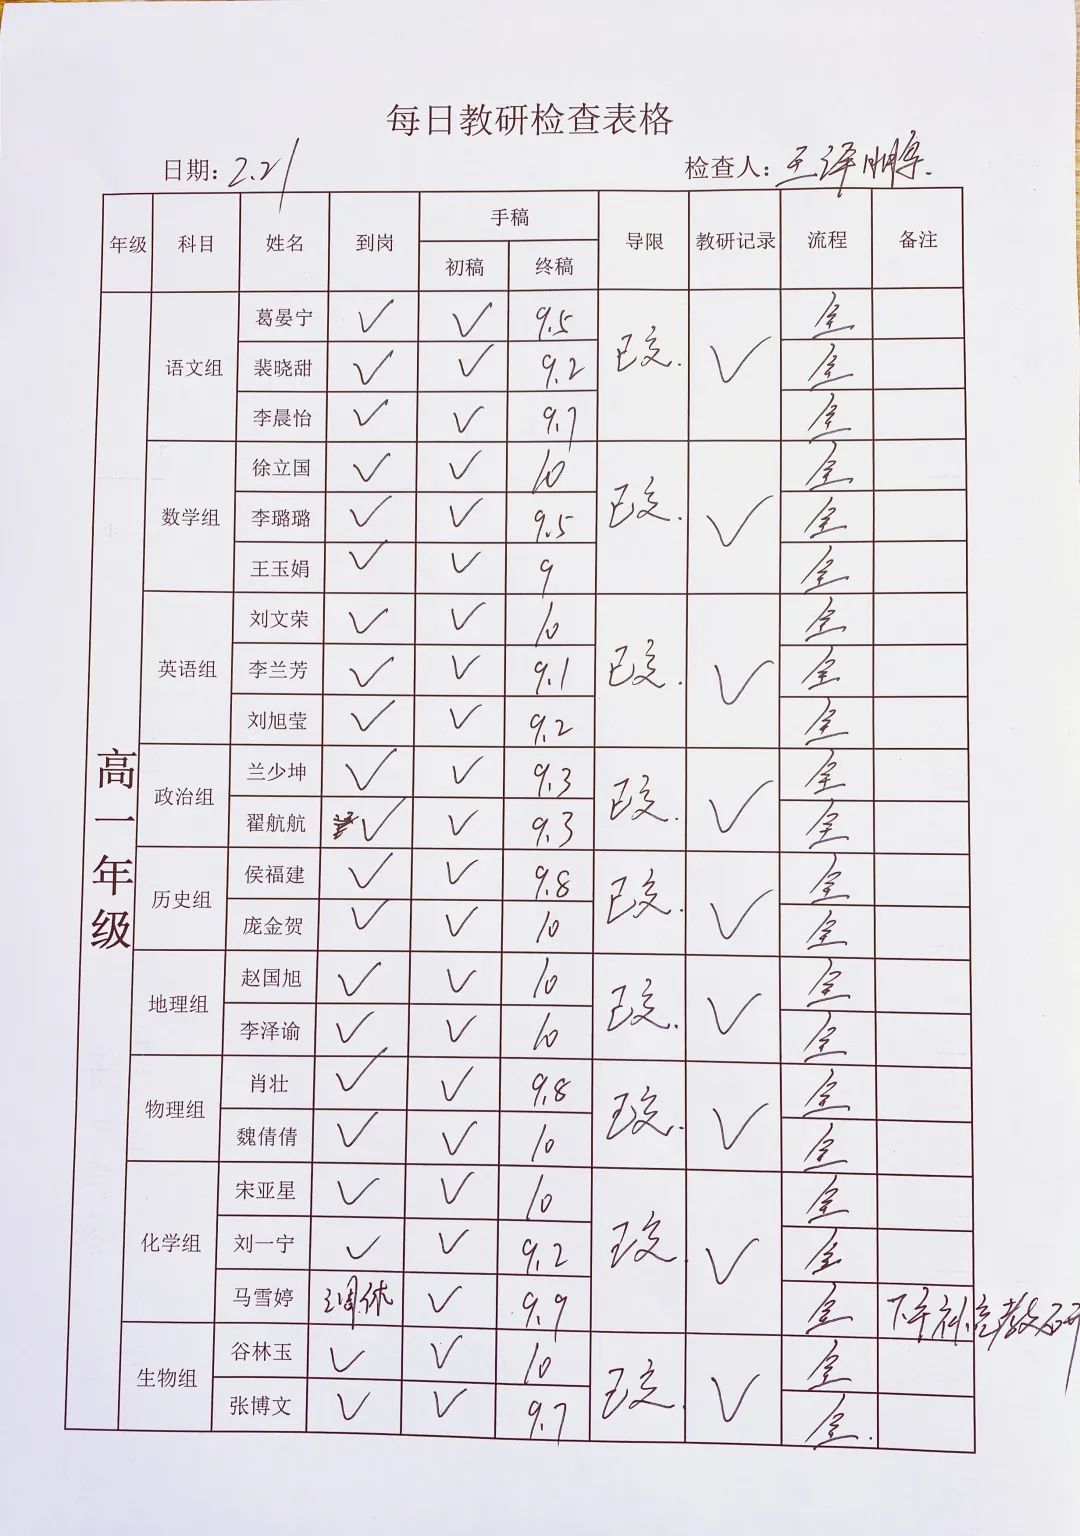 每日教研检查表格
日期: 2.21 检查人: 王泽鹏
年级 科目 姓名 到岗 手稿 导限 教研记录 流程 备注
初稿 终稿
高一年级
语文组 葛晏宁 ✓ ✓ 9.5 已交. ✓ 全
裴晓甜 ✓ ✓ 9.2 全
李晨怡 ✓ ✓ 9.7 全
数学组 徐立国 ✓ ✓ 10 已交. ✓ 全
李璐璐 ✓ ✓ 9.5 全
王玉娟 ✓ ✓ 9 全
英语组 刘文荣 ✓ ✓ 10 已交. ✓ 全
李兰芳 ✓ ✓ 9.1 全
刘旭莹 ✓ ✓ 9.2 全
政治组 兰少坤 ✓ ✓ 9.3 已交. ✓ 全
翟航航 ✓ ✓ 9.3 全
历史组 侯福建 ✓ ✓ 9.8 已交. ✓ 全
庞金贺 ✓ ✓ 10 全
地理组 赵国旭 ✓ ✓ 10 已交. ✓ 全
李泽谕 ✓ ✓ 10 全
物理组 肖壮 ✓ ✓ 9.8 已交. ✓ 全
魏倩倩 ✓ ✓ 10 全
化学组 宋亚星 ✓ ✓ 10 已交. ✓ 全
刘一宁 ✓ ✓ 9.2 全
马雪婷 调休 ✓ 9.9 全 下午补充教研
生物组 谷林玉 ✓ ✓ 10 已交. ✓ 全
张博文 ✓ ✓ 9.7 全.